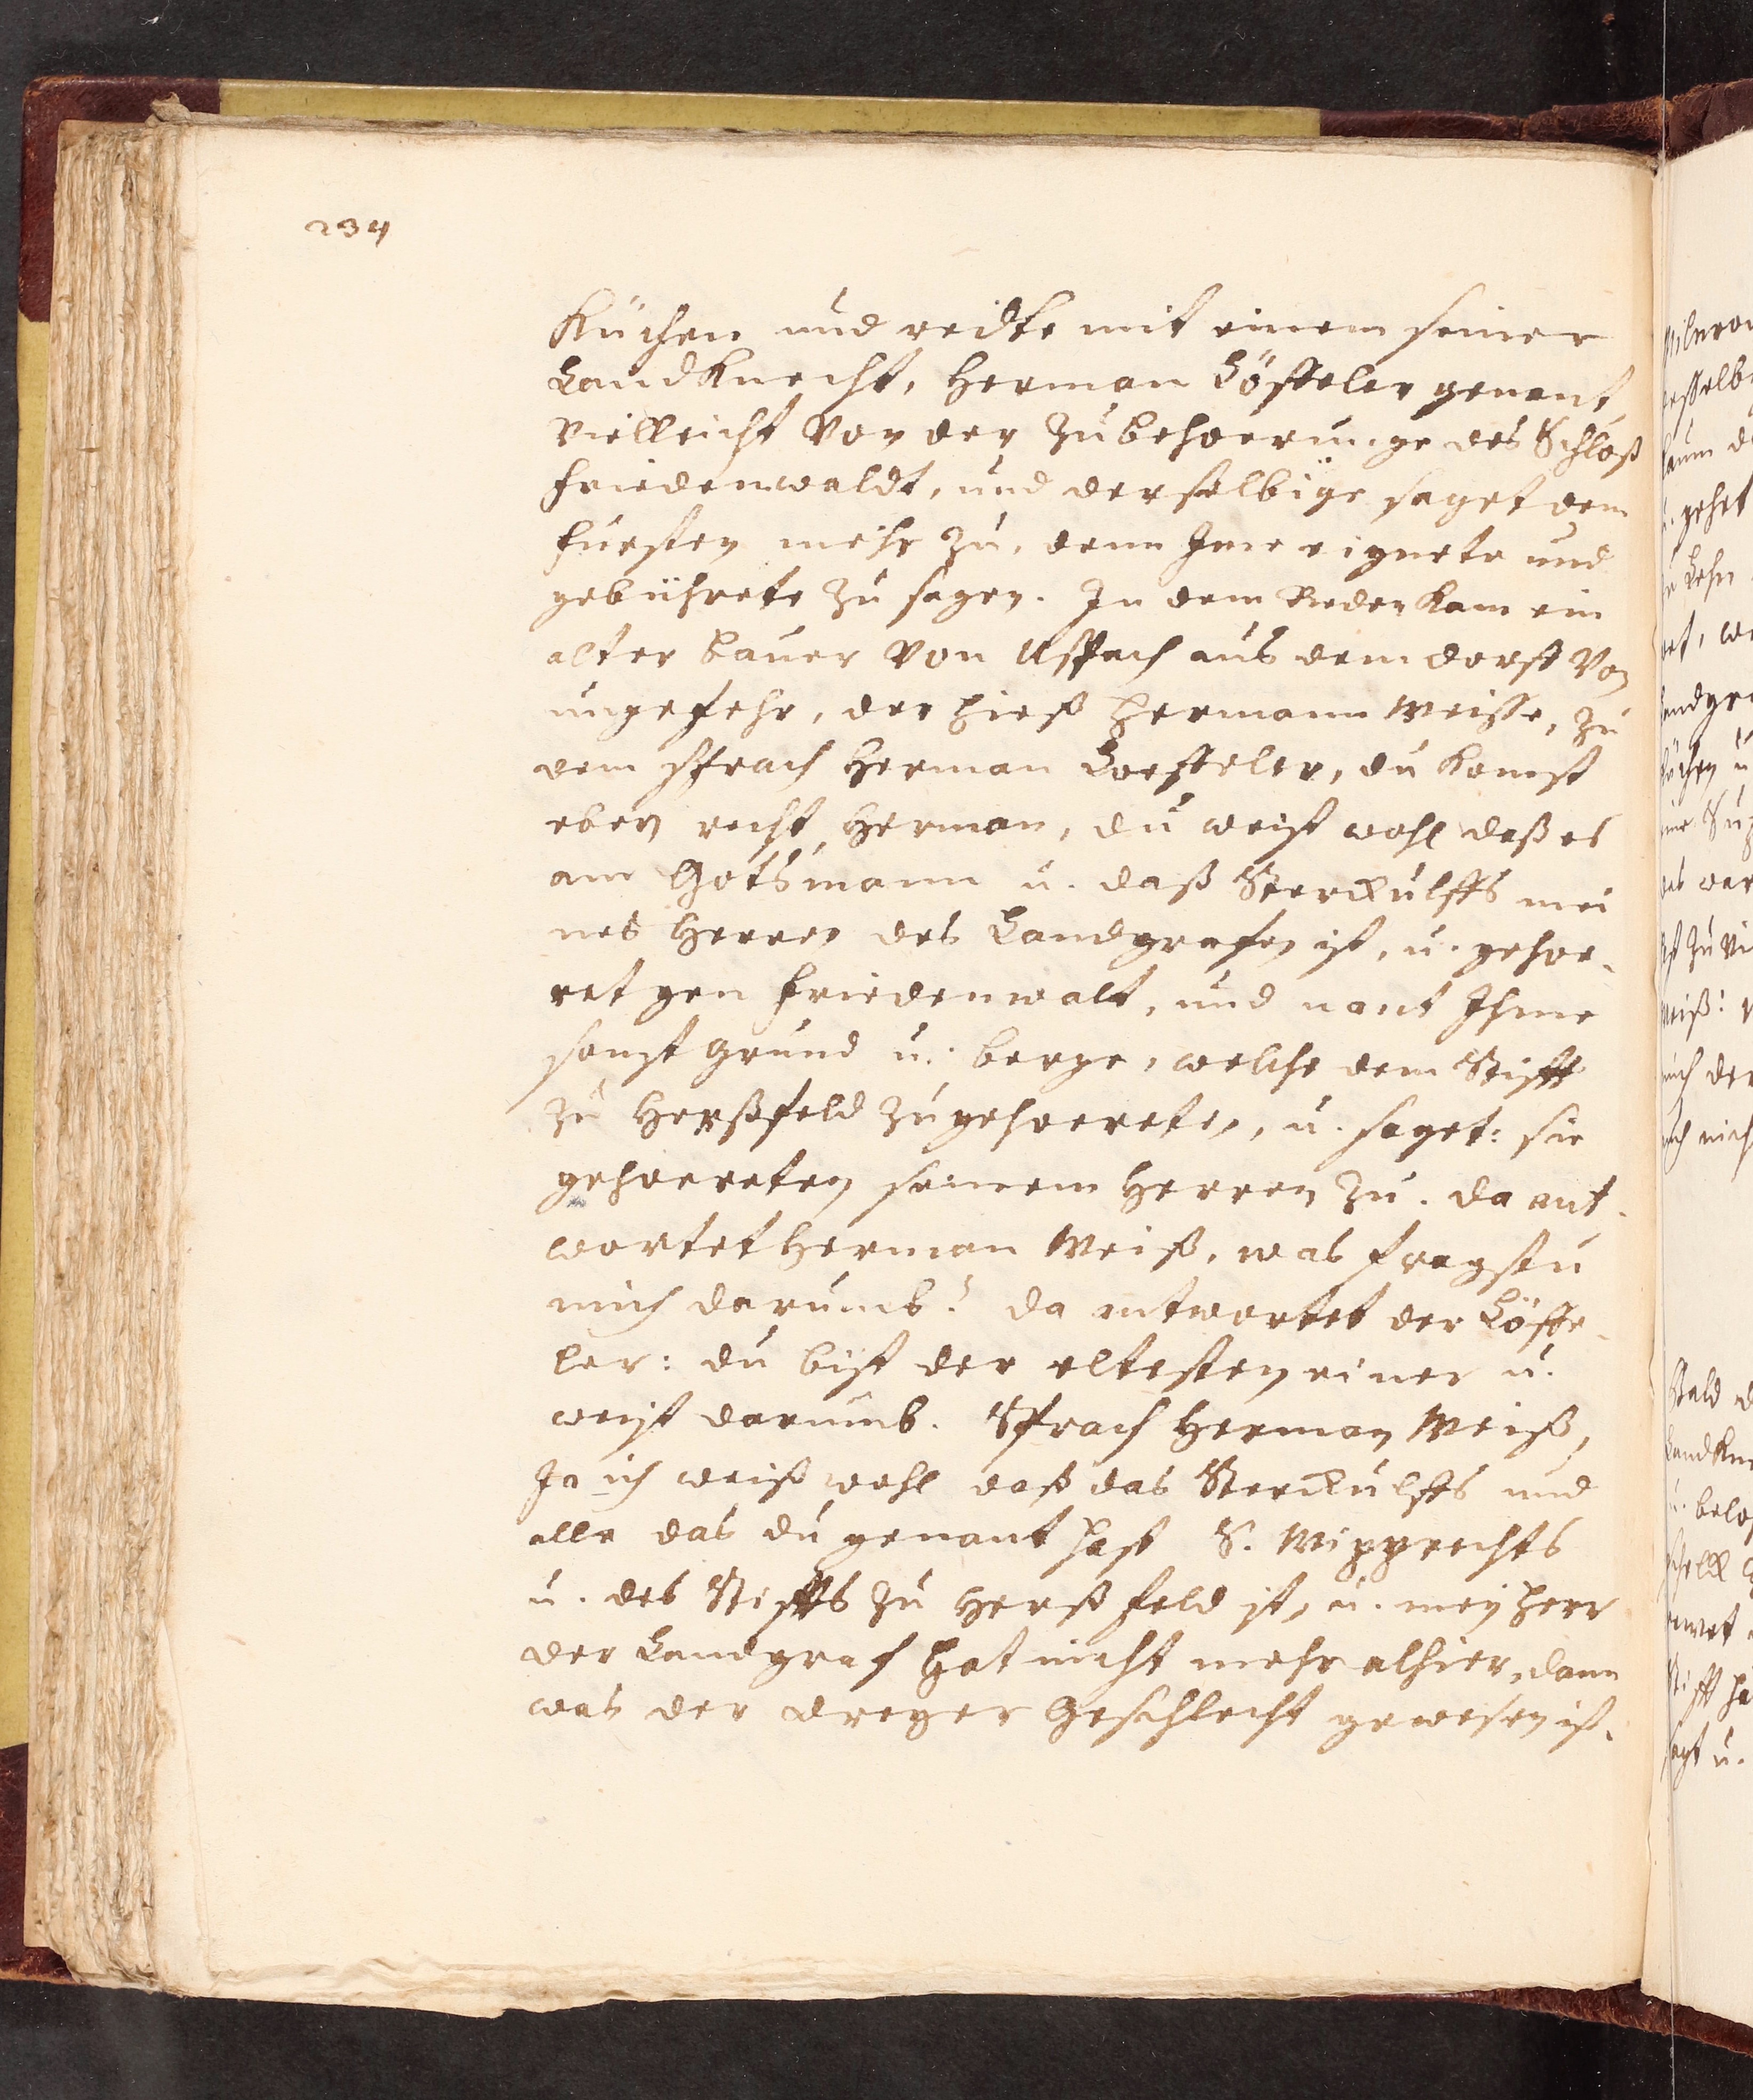 234
Küchen und redte mit einem seiner
Landknecht, Herman Löffeler genant,
vielleicht Von der Zubehoerunge des Schloß
friedenwaldt, und derselbige saget dem
fursten mehr zu, denn Ime eignete und
gebührete zu sagen. In dem Reden kam ein
alter bauer Von Aspach aus dem dorff Von
ungefehr, der hieß Hermann Weisse, zu
dem sprach Herman Loeffeler, du komst
eben recht, Herman, du weist wohl daß es
am Gotsmann u. daß Sterckulffs mei
nes Herren des Landgrafen ist, u. gehoe-
ret gen friedenwalt, und nant Ihme
sonst grund u. berge, welche dem Stifft
zu Herßfeld zugehoereten, u. saget: sie
gehoereten seinem Herren zu. da ant-
wortet Herman Weiß, was fragstu
mich darumb? da antwortet der Löffe-
ler: du bist der eltesten einer u.
weist darumb. Sprach Herman Weiß,
Ja ich weiß wohl daß das Sterckulffs und
alle das du genant hast S. Wipprechts
u. des Stiffts zu Herßfeld ist, u. mein herr
der Landgraf hat nicht mehr alhier, dann
was der dreyer Geschlecht gewesen ist.